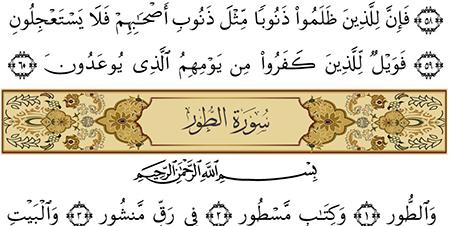 ﴿٥٨﴾ فَإِنَّ لِلَّذِينَ ظَلَمُوا۟ ذَنُوبًا مِّثْلَ ذَنُوبِ أَصْحَٰبِهِمْ فَلَا يَسْتَعْجِلُونِ
﴿٥٩﴾ فَوَيْلٌ لِّلَّذِينَ كَفَرُوا۟ مِن يَوْمِهِمُ ٱلَّذِى يُوعَدُونَ ﴿٦٠﴾
سُورَةُ الطُّورِ
بِسْمِ ٱللَّهِ ٱلرَّحْمَٰنِ ٱلرَّحِيمِ
وَٱلطُّورِ ﴿١﴾ وَكِتَٰبٍ مَّسْطُورٍ ﴿٢﴾ فِى رَقٍّ مَّنشُورٍ ﴿٣﴾ وَٱلْبَيْتِ